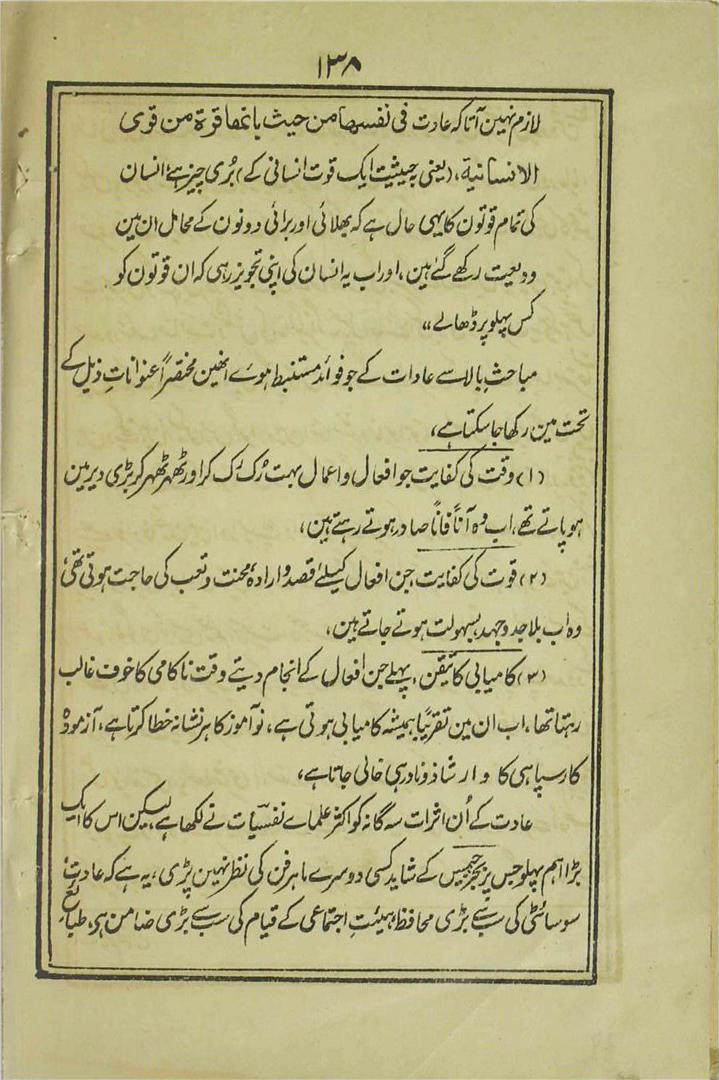 ۱۳۸
لازم نہین آتا کہ عادت فی نفسہا من حیث بانھا قوۃ من قوی
الانسانیۃ، (یعنی بحیثیت ایک قوت انسانی کے) بُری چیز ہے، انسان
کی تمام قوتون کا یہی حال ہے کہ بھلائی اور برائی دونون کے محامل ان مین
ودیعت رکھے گئے ہین، اور اب یہ انسان کی اپنی تجویز رہی کہ ان قوتون کو
کس پہلو پر ڈھالے،،
مباحثِ بالا سے عادات کے جو فوائد مستنبط ہوے انھین مختصراً عنواناتِ ذیل کے
تحت مین رکھا جا سکتا ہے،
(۱) وقت کی کفایت جو افعال و اعمال بہت رُک رُک کر اور ٹھہر ٹھہر کر بڑی دیر مین
ہو پاتے تھے، اب وہ آناً فاناً صادر ہوتے رہتے ہین،
(۲) قوت کی کفایت، جن افعال کیلئے قصد و ارادہ، محنت و تعب کی حاجت ہوتی تھی
وہ اب بلا جد و جہد، بسہولت ہوتے جاتے ہین،
(۳) کامیابی کا تیقن، پہلے جن افعال کے انجام دیتے وقت ناکامی کا خوف غالب
رہتا تھا، اب ان مین تقریباً ہمیشہ کامیابی ہوتی ہے، نو آموز کا ہر نشانہ خطا کرتا ہے، آزمودہ
کار سپاہی کا وار شاذ و نادر ہی خالی جاتا ہے،
عادت کے اُن اثرات سہ گانہ کو اکثر علماے نفسیات نے لکھا ہے لیکن اس کا ایک
بڑا اہم پہلو جس پر بجز جیمس کے شاید کسی دوسرے ماہر فن کی نظر نہین پڑی، یہ ہے کہ عادت،
سوسائٹی کی سب سے بڑی محافظ ہیئتِ اجتماعی کے قیام کی سب سے بڑی ضامن ہی، طبائع